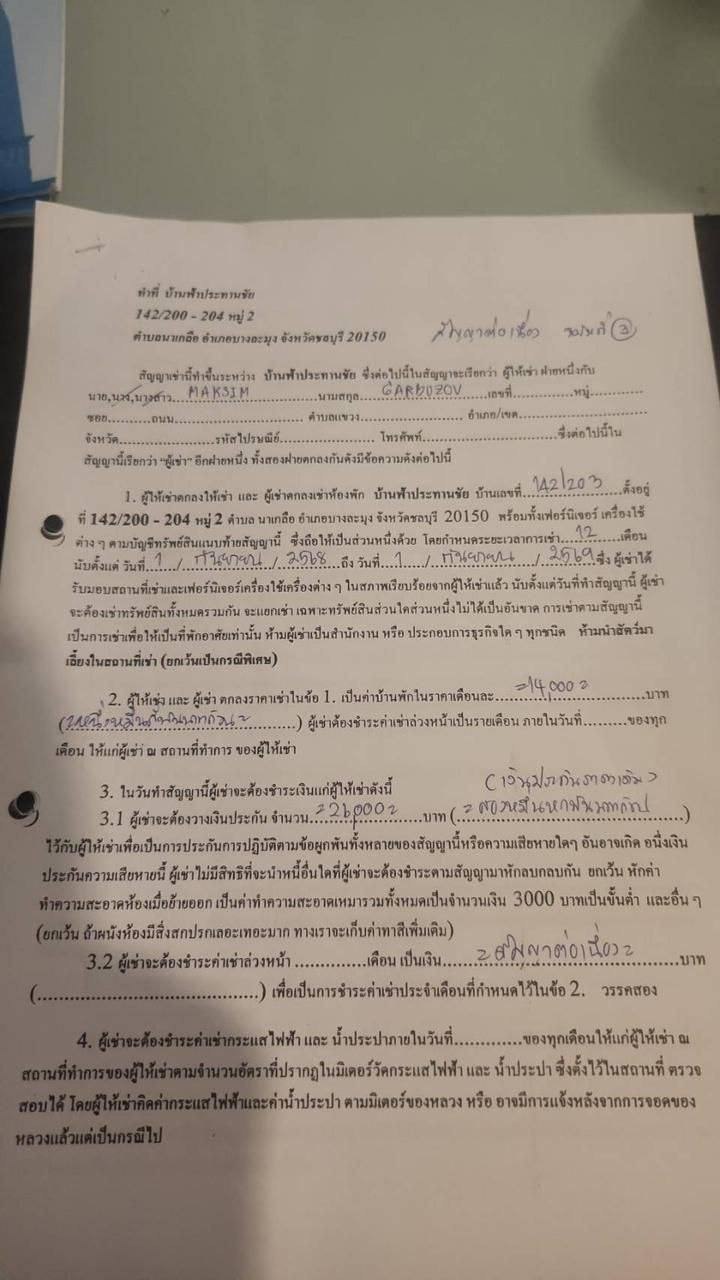 ทำที่ บ้านฟ้าประทานชัย
142/200 - 204 หมู่ 2
ตำบลนาเกลือ อำเภอบางละมุง จังหวัดชลบุรี 20150
สัญญาต่อเนื่อง ฉบับที่ 3
สัญญาเช่านี้ทำขึ้นระหว่าง บ้านฟ้าประทานชัย ซึ่งต่อไปนี้ในสัญญาจะเรียกว่า ผู้ให้เช่า ฝ่ายหนึ่งกับ
นาย,นาง,นางสาว...MAKSIM...นามสกุล...GARBUZOV...เลขที่...............หมู่.............
ซอย..........ถนน............................... ตำบล/แขวง......................... อำเภอ/เขต...............................
จังหวัด......................รหัสไปรษณีย์...................... โทรศัพท์...............................ซึ่งต่อไปนี้ใน
สัญญานี้เรียกว่า "ผู้เช่า" อีกฝ่ายหนึ่ง ทั้งสองฝ่ายตกลงกันดังมีข้อความดังต่อไปนี้
1. ผู้ให้เช่าตกลงให้เช่า และ ผู้เช่าตกลงเช่าห้องพัก บ้านฟ้าประทานชัย บ้านเลขที่...142/203...ตั้งอยู่
ที่ 142/200 - 204 หมู่ 2 ตำบล นาเกลือ อำเภอบางละมุง จังหวัดชลบุรี 20150 พร้อมทั้งเฟอร์นิเจอร์ เครื่องใช้
ต่าง ๆ ตามบัญชีทรัพย์สินแนบท้ายสัญญานี้ ซึ่งถือให้เป็นส่วนหนึ่งด้วย โดยกำหนดระยะเวลาการเช่า...12...เดือน
นับตั้งแต่ วันที่...1.../...กันยายน.../...2568...ถึง วันที่...1.../...กันยายน.../...2569...ซึ่ง ผู้เช่าได้
รับมอบสถานที่เช่าและเฟอร์นิเจอร์เครื่องใช้เครื่องต่าง ๆ ในสภาพเรียบร้อยจากผู้ให้เช่าแล้ว นับตั้งแต่วันที่ทำสัญญานี้ ผู้เช่า
จะต้องเช่าทรัพย์สินทั้งหมดรวมกัน จะแยกเช่า เฉพาะทรัพย์สินส่วนใดส่วนหนึ่งไม่ได้เป็นอันขาด การเช่าตามสัญญานี้
เป็นการเช่าเพื่อให้เป็นที่พักอาศัยเท่านั้น ห้ามผู้เช่าเป็นสำนักงาน หรือ ประกอบการธุรกิจใด ๆ ทุกชนิด ห้ามนำสัตว์มา
เลี้ยงในสถานที่เช่า (ยกเว้นเป็นกรณีพิเศษ)
2. ผู้ให้เช่า และ ผู้เช่า ตกลงราคาเช่าในข้อ 1. เป็นค่าบ้านพักในราคาเดือนละ...=14,000=...บาท
(=หนึ่งหมื่นสี่พันบาทถ้วน=) ผู้เช่าต้องชำระค่าเช่าล่วงหน้าเป็นรายเดือน ภายในวันที่.........ของทุก
เดือน ให้แก่ผู้เช่า ณ สถานที่ทำการ ของผู้ให้เช่า
3. ในวันทำสัญญานี้ผู้เช่าจะต้องชำระเงินแก่ผู้ให้เช่าดังนี้
(เงินประกันราคาเดิม)
3.1 ผู้เช่าจะต้องวางเงินประกัน จำนวน...=26,000=...บาท (...=สองหมื่นหกพันบาทถ้วน...)
ไว้กับผู้ให้เช่าเพื่อเป็นการประกันการปฏิบัติตามข้อผูกพันทั้งหลายของสัญญานี้หรือความเสียหายใดๆ อันอาจเกิด อนึ่งเงิน
ประกันความเสียหายนี้ ผู้เช่าไม่มีสิทธิที่จะนำหนี้อื่นใดที่ผู้เช่าจะต้องชำระตามสัญญามาหักลบกลบกัน ยกเว้น หักค่า
ทำความสะอาดห้องเมื่อย้ายออก เป็นค่าทำความสะอาดเหมารวมทั้งหมดเป็นจำนวนเงิน 3000 บาทเป็นขั้นต่ำ และอื่น ๆ
(ยกเว้น ถ้าผนังห้องมีสิ่งสกปรกเลอะเทอะมาก ทางเราจะเก็บค่าทาสีเพิ่มเติม)
3.2 ผู้เช่าจะต้องชำระค่าเช่าล่วงหน้า ..............เดือน เป็นเงิน...=สัญญาต่อเนื่อง=...บาท
(........................................) เพื่อเป็นการชำระค่าเช่าประจำเดือนที่กำหนดไว้ในข้อ 2. วรรคสอง
4. ผู้เช่าจะต้องชำระค่าเช่ากระแสไฟฟ้า และ น้ำประปาภายในวันที่.............ของทุกเดือนให้แก่ผู้ให้เช่า ณ
สถานที่ทำการของผู้ให้เช่าตามจำนวนอัตราที่ปรากฏในมิเตอร์วัดกระแสไฟฟ้า และ น้ำประปา ซึ่งตั้งไว้ในสถานที่ ตรวจ
สอบได้ โดยผู้ให้เช่าคิดค่ากระแสไฟฟ้าและค่าน้ำประปา ตามมิเตอร์ของหลวง หรือ อาจมีการแจ้งหลังจากการจอดของ
หลวงแล้วแต่เป็นกรณีไป